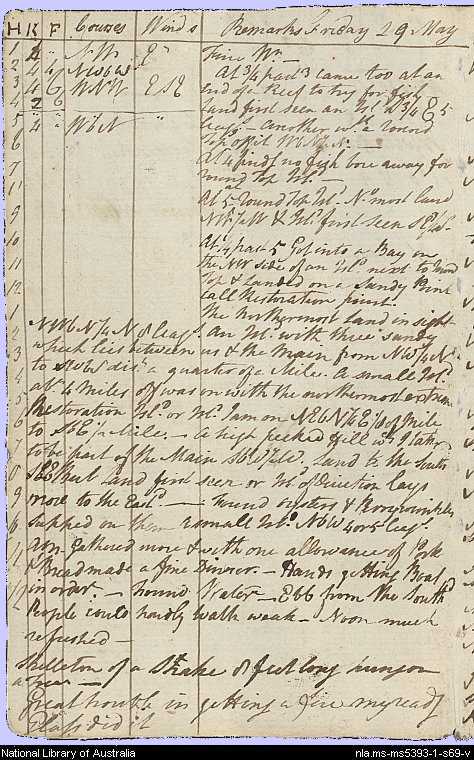 H K F Courses Winds Remarks Friday 29 May
1 NW E
Fine Wr
2 4 " NWbW At 3/4 past 3 came too at an
3 4 6 WNW ESE end of a Reef to try for fish
4 2 6 land first seen an Isl. S 3/4 E 5
5 4 " WbN " leags - another with a round
6 top off it WbN 1/2 N. -
7 At 4 find no fish bore away for
round top Isld.
At 5 round top Isd. No. most land
9 NW 1/2 W & Isd. first seen
10 At 1/4 past 5 Got into a Bay on
11 the NW side of an Isd. next to round
12 Top & landed on a Sandy Point
call Restoration point.
1 The Northermost land in sight
2 NWbN 1/4 N 8 leags. An Isd. with three sandy
3 which lies between us & the Main from NW 1/4 N
to SWbW dist. a quarter of a Mile. A small Isd.
4 at 4 Miles off was on with the northermost extrem
5 Restoration Isd. or Isd. I am on NEbN 1/2 E 1/8 of Mile
6 to SbE 1/2 Mile. - A high peeked Hill wh. I take
7 to be part of the Main SbW land to the South
8 and first seen or Isd. of Direction lays
9 more to the East. - Found oysters & Perrywinkles
10 Supped on them a small Isd. NbW 4 or 5 leags.
11 gathered more & with one allowance of Pork
12 & Bread made a fine Dinner. - Hands getting Boat
in order. - found Water - Ebb from the Southd
People could hardly walk weak - Noon much
refreshed -
Skelleton of a Snake 8 feet long hung on
a Tree -
Great trouble in getting a fire my read
Glass did it
National Library of Australia nla.ms-ms5393-1-s69-v